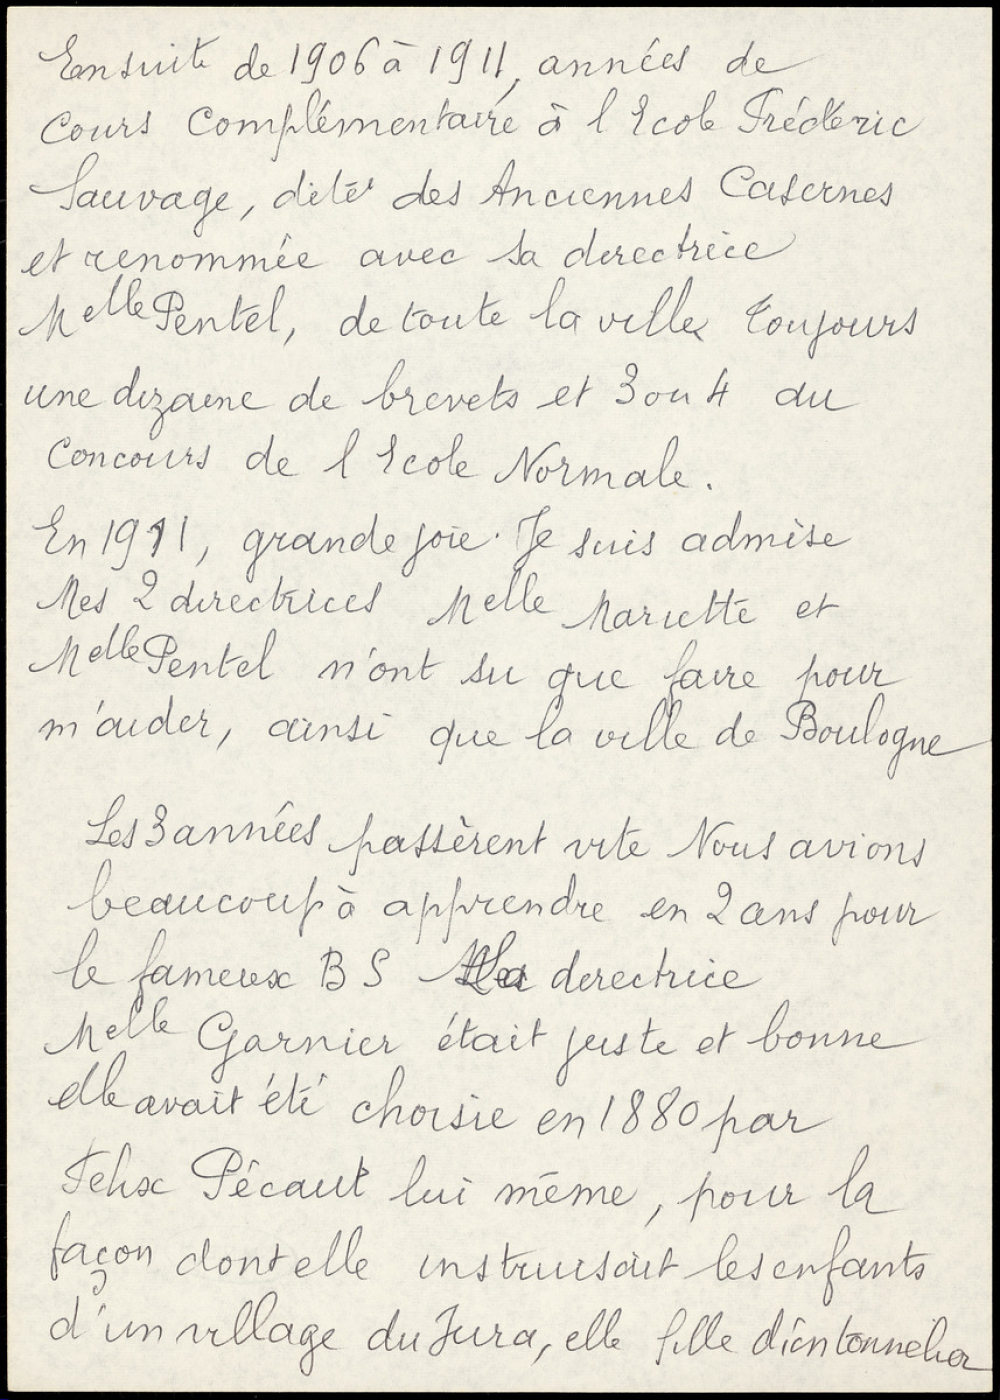 Ensuite de 1906 à 1911, années de
Cours Complémentaire à l'Ecole Frédéric
Sauvage, dite des Anciennes Casernes
et renommée avec sa directrice
Melle Pentel, de toute la ville, toujours
une dizaine de brevets et 3 ou 4 au
Concours de l'Ecole Normale.
En 1911, grande joie. Je suis admise
Mes 2 directrices Melle Mariette et
Melle Pentel n'ont su que faire pour
m'aider, ainsi que la ville de Boulogne
Les 3 années passèrent vite Nous avions
beaucoup à apprendre en 2 ans pour
le fameux B S La directrice
Melle Garnier était juste et bonne
elle avait été choisie en 1880 par
Felix Pécaut lui même, pour la
façon dont elle instruisait les enfants
d'un village du Jura, elle fille d'un tonnelier